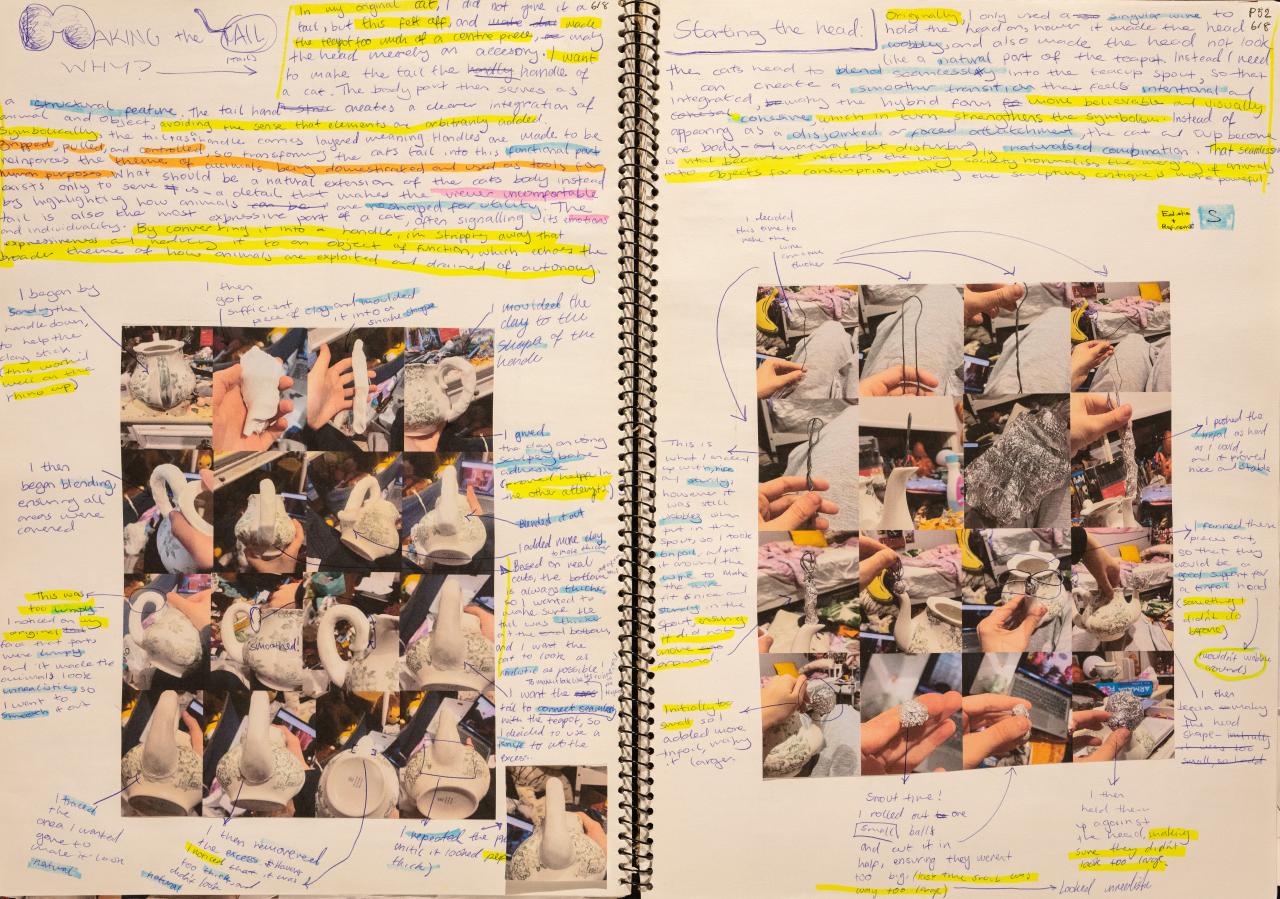 MAKING the TAIL
(Trails)
WHY?
6/8
In my original cat, I did not give it a
tail, but this felt off, and made
the teapot too much of a centre piece,
the head merely an accessory. I want
to make the tail the handle of
a cat. The body part then serves as
a structural feature. The tail hand creates a clearer integration of
animal and object, avoiding the sense that elements are arbitrarily added.
Symbolically, the tail as a handle carries layered meaning. Handles are made to be
gripped, pulled, and controlled, so transforming the cats tail into this functional part
reinforces the theme of animals being domesticated and used as tools for
human purposes. What should be a natural extension of the cats body instead
exists only to serve us - a detail that makes the viewer uncomfortable
by highlighting how animals are reshaped for utility. The
tail is also the most expressive part of a cat, often signalling its emotions
and individuality. By converting it into a handle, im stripping away that
expressiveness and reducing it to an object of function, which echoes the
broader theme of how animals are exploited and drained of autonomy.
I began by
sanding the
handle down,
to help the
clay stick
(this worked
well on the
rhino cup)
I then
got a
sufficient
piece of clay and moulded
it into a
snake shape
I moulded the
clay to the
shape of the
handle
I glued
the clay on using
sculpey bake
adhesive
(proved helpful in
the other attempt)
I then
began blending,
ensuring all
areas were
covered
Blended it out
I added more clay
to make thicker
Based on real
cats, the bottom
is always thicker,
so I wanted to
make sure the
tail was thick
at the bottom,
and I want the
cat to look as
realistic as possible!
This was
too lumpy
I noticed on my
original
face that parts
were lumpy
and it made the
animals look
unrealistic so
I want to
smooth it out
smoothed!
I want the
tail to connect seamlessly
with the teapot, so
I decided to use a
knife to cut the
excess.
I traced
the
area I wanted
gone to
make it look
natural
I then removed
the excess
I noticed that it was
too thick and
didnt look
natural
I repeated the process
until it looked
thick)
Starting the head:
P52
6/8
Originally, I only used a singular wire to
hold the head on, however it made the head
wobbly, and also made the head not look
like a natural part of the teapot. Instead I need
the cats head to blend seamlessly into the teacup spout, so that
I can create a smoother transition that feels intentional and
integrated, making the hybrid form more believable and visually
cohesive, which in turn strengthens the symbolism. Instead of
appearing as a disjointed or forced attatchment, the cat and cup become
one body - natural but disturbing naturalised combination. That seamlessness
is vital because it reflects the way society normalises the merging of animals
into objects for consumption, making the sculptures critique more powerful.
S
I decided
this time to
make the
wire
thicker
This is
what I ended
up with, nice
and sturdy,
however it
was still
wobbly when
put in the
spout, so I took
tinfoil, and put
it around the
wire to make
fit nice and
sturdy in the
spout, ensuring
it did not
move
around
I pushed the
tinfoil as hard
as I could
and it proved
nice and stable
I fanned these
pieces out,
so that they
would be a
good support for
a tinfoil head
something I
didnt do
before
(wouldn't wobble
around)
Initially too
small so I
added more
tinfoil, making
it larger.
I then
began making
the head
shape - initially
it was too
small, so I add
Snout time!
I rolled out one
small balls
and cut it in
half, ensuring they werent
too big. (last time snout was
way too large)
Looked unrealistic
I then
held them
up against
the head, making
sure they didnt
look too large.